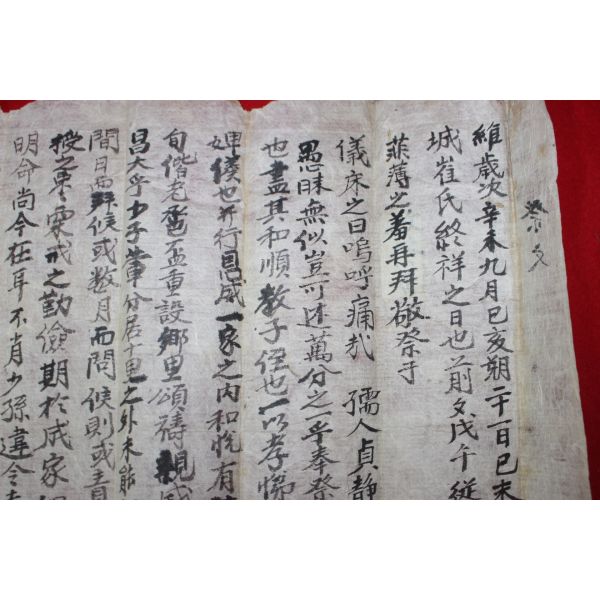 祭文
維歲次辛未九月己亥朔二十一日己未
城崔氏終祥之日也前夕戊午從
菲薄之羞再拜敬祭于
儀床之曰嗚呼痛哉 孺人貞靜
愚昧無似豈可述萬分之一乎奉祭
也盡其和順教子侄也一以孝悌
婢僕也并行恩威一家之內和悅有
旬偕老巹盃重設鄉里頌禱親戚
昌大乎少子輩分居十里之外未能
間日西辭候或數月而問候則或
授之栗戒之勤儉期於成家
明命尚今在耳不肖少孫違令